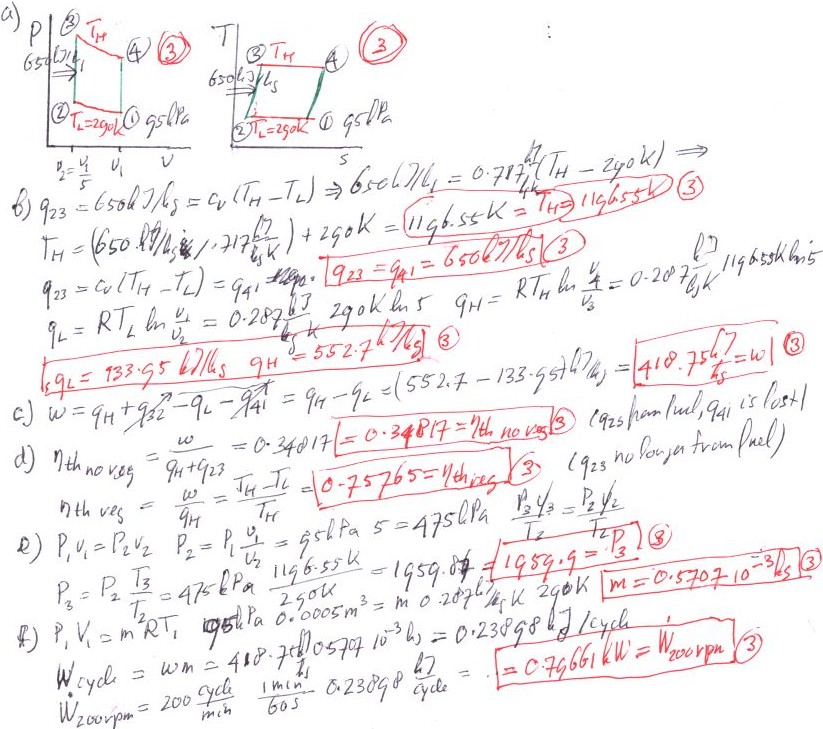 a) P ③ T_H ④ ③ T ③ T_H ④ ③
650kJ/kg 650kJ/kg
② T_L=290K ① 95kPa ② T_L=290K ① 95kPa
v₂=v₁/5 v₁ v s
b) q₂₃ = 650kJ/kg = c_v (T_H − T_L) ⇒ 650kJ/kg = 0.787 kJ/kgK (T_H − 290K) ⇒
T_H = (650 kJ/kg / .717 kJ/kgK) + 290K = 1196.55K = T_H = 1196.55K ③
q₂₃ = c_v(T_H − T_L) = q₄₁ q₂₃ = q₄₁ = 650kJ/kg ③
q_L = RT_L ln v₁/v₂ = 0.287 kJ/kg K 290K ln 5 q_H = RT_H ln v₄/v₃ = 0.287 kJ/kgK 1196.55K ln 5
q_L = 133.95 kJ/kg q_H = 552.7 kJ/kg ③
c) w = q_H + q₃₂ − q_L − q₄₁ = q_H − q_L = (552.7 − 133.95) kJ/kg = 418.75 kJ/kg = w ③
d) η_th no reg = w/(q_H + q₂₃) = 0.34817 = 0.34817 = η_th no reg ③ (q₂₃ from fuel, q₄₁ is lost)
η_th reg = w/q_H = (T_H − T_L)/T_H = 0.75765 = η_th reg ③ (q₂₃ no longer from fuel)
e) P₁v₁ = P₂v₂ P₂ = P₁ v₁/v₂ = 95kPa 5 = 475kPa P₃v₃/T₂ = P₂v₂/T₂
P₃ = P₂ T₃/T₂ = 475kPa 1196.55K/290K = 1959.87 = 1959.9 = P₃ ③
f) P₁V₁ = mRT₁ 95kPa 0.0005m³ = m 0.287 kJ/kg K 290K m = 0.5707 10⁻³kg ③
W cycle = wm = 418.75 kJ/kg 0.5707 10⁻³ kg = 0.23898 kJ/cycle
Ẇ 200rpm = 200 cycle/min 1min/60s 0.23898 kJ/cycle = = 0.79661kW = Ẇ 200rpm ③